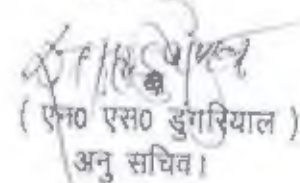 ( एन0 एस0 डुंगरियाल )
अनु सचिव।